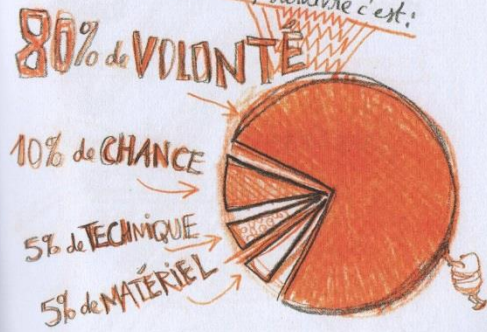 c'est:
80% de VOLONTÉ
10% de CHANCE
5% de TECHNIQUE
5% de MATÉRIEL